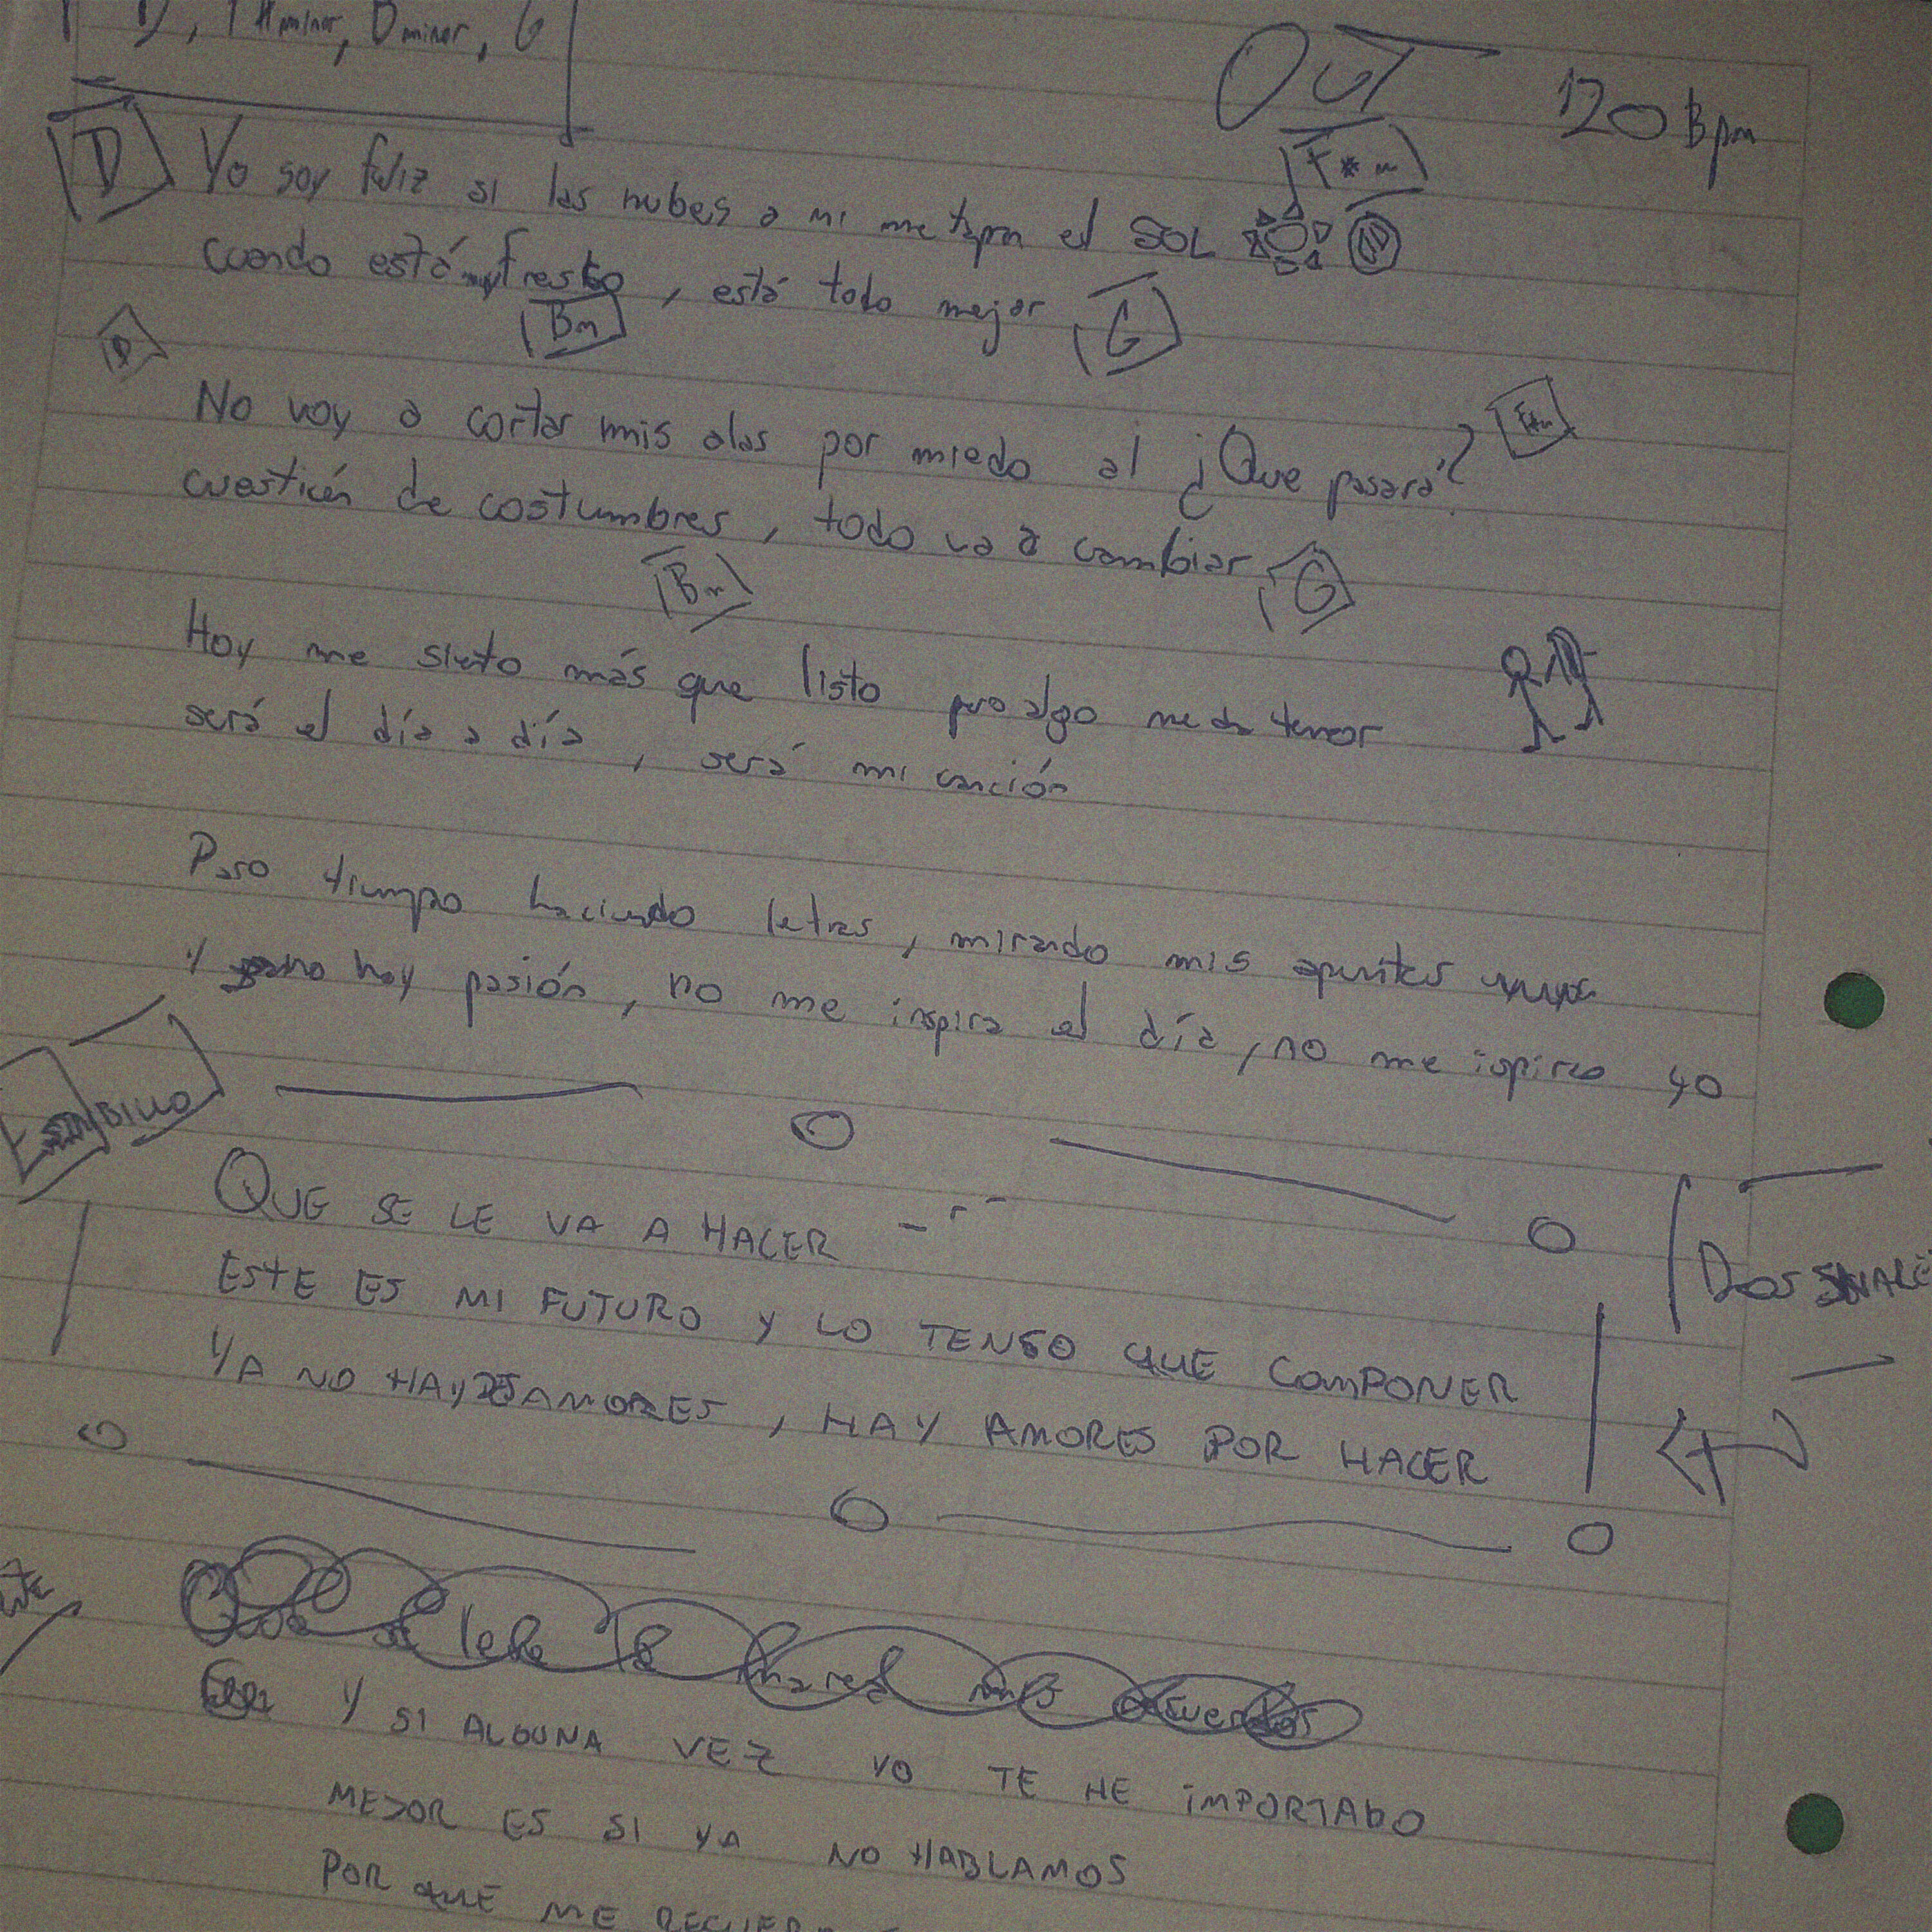 D, F#minor, Dminor, G
OUT
120 Bpm
F#m
D Yo soy feliz si las nubes a mi me tapan el SOL
cuando está muy fresco, está todo mejor
Bm
G
D
No voy a cortar mis alas por miedo al ¿Que pasará?
F#m
cuestión de costumbres, todo va a cambiar
Bm
G
Hoy me sieto más que listo pero algo me da temor
será el día a día, será mi canción
Paso tiempo haciendo letras, mirando mis apuntes
Y no hay pasión, no me inspira el día, no me ispiro yo
ESTRIBILLO
QUE SE LE VA A HACER
ESTE ES MI FUTURO Y LO TENGO QUE COMPONER
YA NO HAY DESAMORES, HAY AMORES POR HACER
Dos
Y SI ALGUNA VEZ YO TE HE IMPORTADO
MEJOR ES SI YA NO HABLAMOS
POR QUE ME